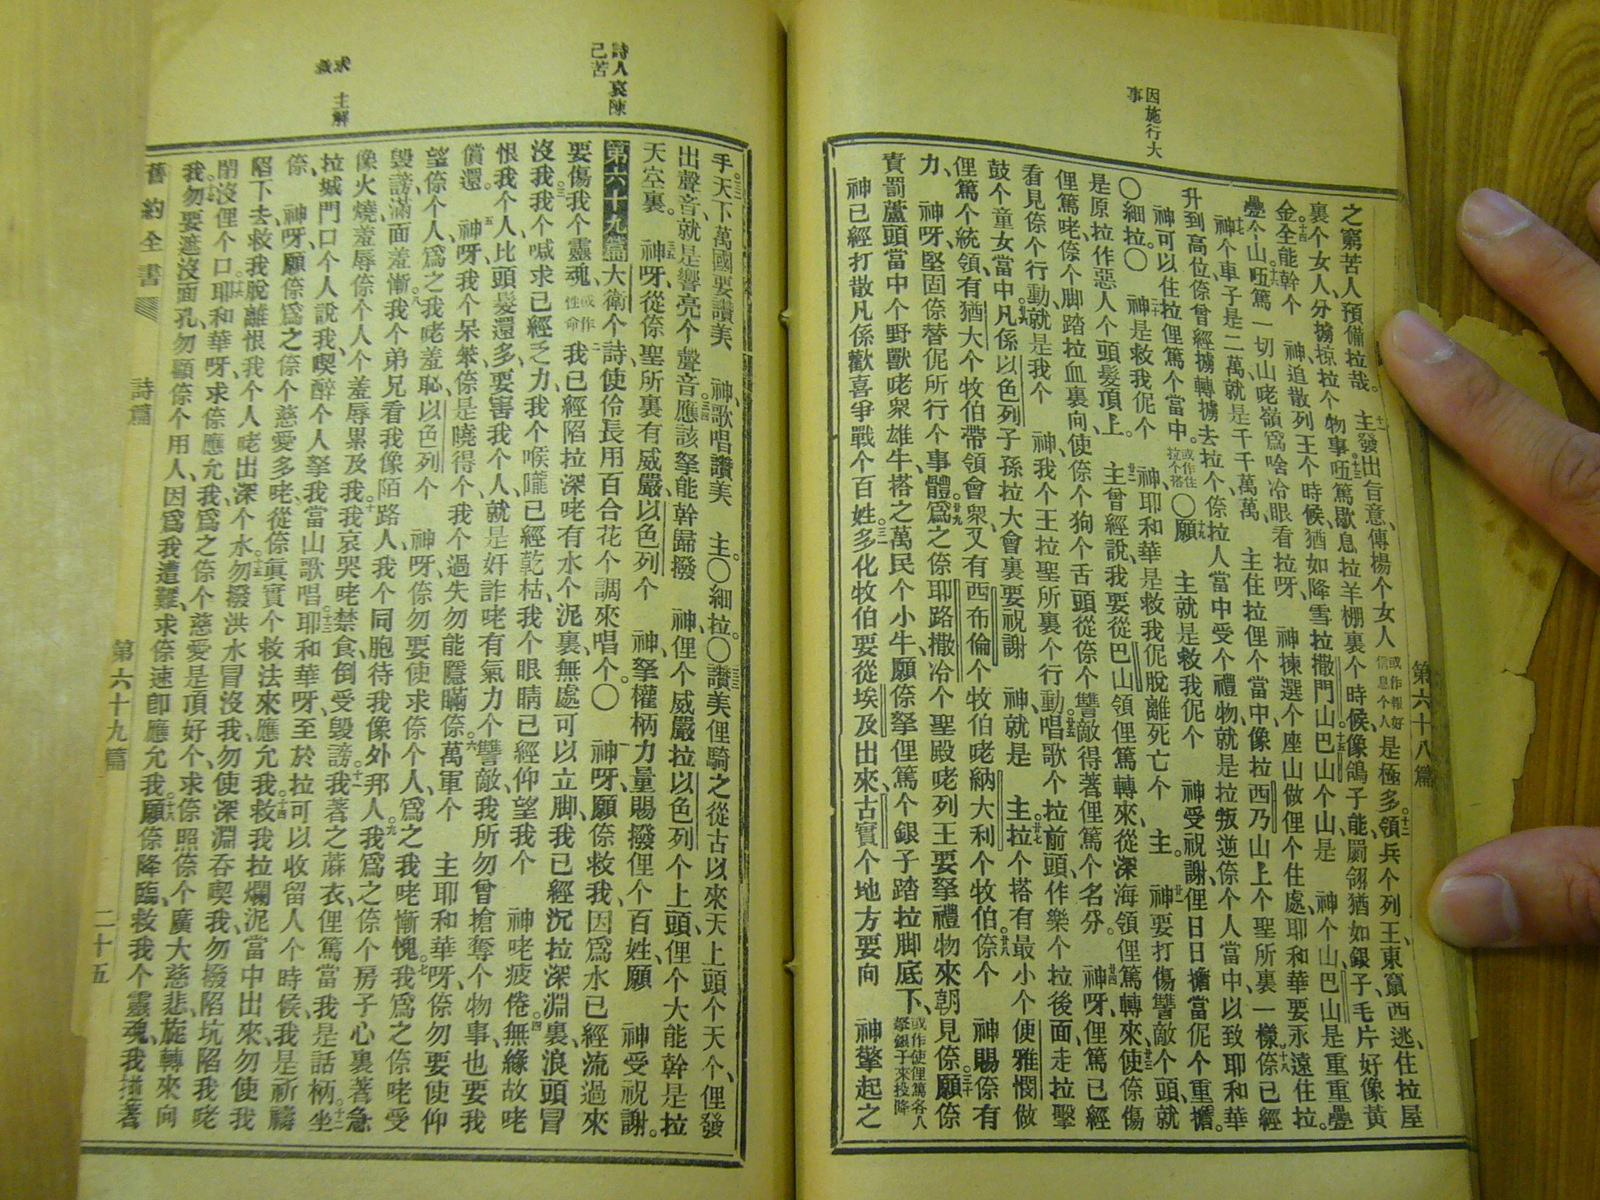 因施行大
事
第六十八篇
之窮苦人預備拉哉。 主發出旨意、傳揚个女人 或作報好信息个人 是極多。領兵个列王、東竄西逃、住拉屋
裏个女人、分擄掠拉个物事。㑚篤歇息拉羊棚裏个時候、像鴿子能、翩翎猶如銀子、毛片好像黃
金。全能幹个 神追散列王个時候、猶如降雪拉撒門山。巴山个山、是 神个山、巴山是重重疊
疊个山。㑚篤一切山咾嶺、爲啥冷眼看拉呀。 神揀選个座山、做俚个住處、耶和華要永遠住拉。
神个車子是二萬、就是千千萬萬、 主住拉俚个當中、像拉西乃山上个聖所裏一樣。倷已經
升到高位、倷曾經擄轉擄去拉个、倷拉人當中受个禮物、就是拉叛逆倷个人當中、以致耶和華
神可以住拉俚篤个當中。 或作住拉个搭 〇願 主就是救我伲个 神受祝謝、俚日日擔當伲个重擔。
〇細拉。〇 神是救我伲个 神、耶和華是救我伲脫離死亡个 主。 神要打傷讐敵个頭、就
是原拉作惡人个頭髮頂上。 主曾經說、我要從巴山領俚篤轉來、從深海領俚篤轉來、使倷傷
俚篤咾、倷个脚踏拉血裏向、使倷个狗个舌頭、從倷个讐敵得著俚篤个名分。 神呀、俚篤已經
看見倷个行動、就是我个 神、我个王、拉聖所裏个行動。唱歌个拉前頭、作樂个拉後面、走拉擊
鼓个童女當中。凡係以色列子孫、拉大會裏要祝謝 神、就是 主。拉个搭有最小个便雅憫、做
俚篤个統領、有猶大个牧伯、帶領會衆、又有西布倫个牧伯咾、納大利个牧伯。倷个 神、賜倷有
力、 神呀、堅固倷替伲所行个事體。爲之倷耶路撒冷个聖殿咾、列王要拏禮物來朝見倷。願倷
責罰蘆頭當中个野獸咾、衆雄牛、搭之萬民个小牛、願倷拏俚篤个銀子踏拉脚底下、 或作使俚篤各人拏銀子來投降
神已經打散凡係歡喜爭戰个百姓。多化牧伯要從埃及出來、古實个地方要向 神擎起之
詩人哀陳
己苦
主解
手。天下萬國要讚美 神、歌唱讚美 主。〇細拉。〇讚美俚騎之從古以來天上頭个天个、俚發
出聲音、就是響亮个聲音。應該拏能幹歸撥 神、俚个威嚴拉以色列个上頭、俚个大能幹是拉
天空裏。 神呀、從倷聖所裏有威嚴、以色列个 神、拏權柄力量賜撥俚个百姓、願 神受祝謝。
第六十九篇 大衛个詩、使伶長用百合花个調來唱个。〇 神呀、願倷救我、因爲水已經流過來
要傷我个靈魂。 或作性命 我已經陷拉深咾有水个泥裏、無處可以立脚、我已經沉拉深淵裏、浪頭冒
沒我。我个喊求已經乏力、我个喉嚨已經乾枯、我个眼睛已經仰望我个 神咾疲倦。無緣故咾
恨我个人、比頭髮還多、要害我个人、就是奸詐咾有氣力个讐敵、我所勿曾搶奪个物事、也要我
償還。 神呀、我个呆笨、倷是曉得个、我个過失勿能隱瞞倷。萬軍个 主耶和華呀、倷勿要使仰
望倷个人、爲之我咾羞恥、以色列个 神呀、倷勿要使求倷个人、爲之我咾慚愧。我爲之倷咾受
毀謗、滿面羞慚。我个弟兄看我像陌路人、我个同胞待我像外邦人。我爲之倷个房子、心裏著急
像火燒、羞辱倷个人个羞辱累及我。我哀哭咾禁食、倒受毀謗。我著之蔴衣、俚篤當我是話柄。坐
拉城門口个人說我、喫醉个人拏我當山歌唱。耶和華呀、至於拉可以收留人个時候、我是祈禱
倷、 神呀、願倷爲之倷个慈愛多咾、從倷眞實个救法來應允我。救我拉爛泥當中出來、勿使我
陷下去、救我脫離恨我个人咾、出深个水。勿撥洪水冒沒我、勿使深淵吞喫我、勿撥陷坑陷我咾
閉沒俚个口。耶和華呀、求倷應允我、爲之倷个慈愛是頂好个、求倷照倷个廣大慈悲、旋轉來向
我。勿要遮沒面孔、勿顧倷个用人、因爲我遭難、求倷速卽應允我。願倷降臨、救我个靈魂、我
舊約全書 詩篇 第六十九篇 二十五